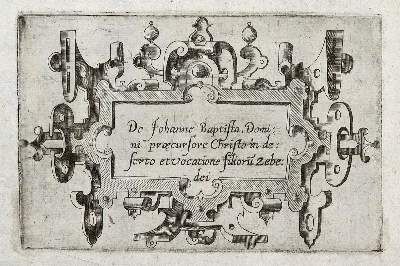 De Johanne Baptista Domi:
ni præcursore Christo in de:
serto et vocatione filiorū Zebe:
dei